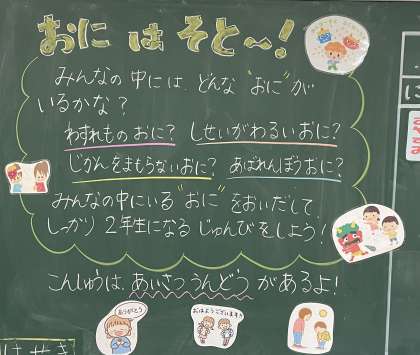 おにはそと〜!
みんなの中には、どんな"おに"が
いるかな?
わすれものおに? しせいがわるいおに?
じかんをまもらないおに? あばれんぼうおに?
みんなの中にいる"おに"をおいだして
しっかり2年生になるじゅんびをしよう!
こんしゅうは、あいさつうんどうがあるよ!
ありがとう
おはようございます
はせき